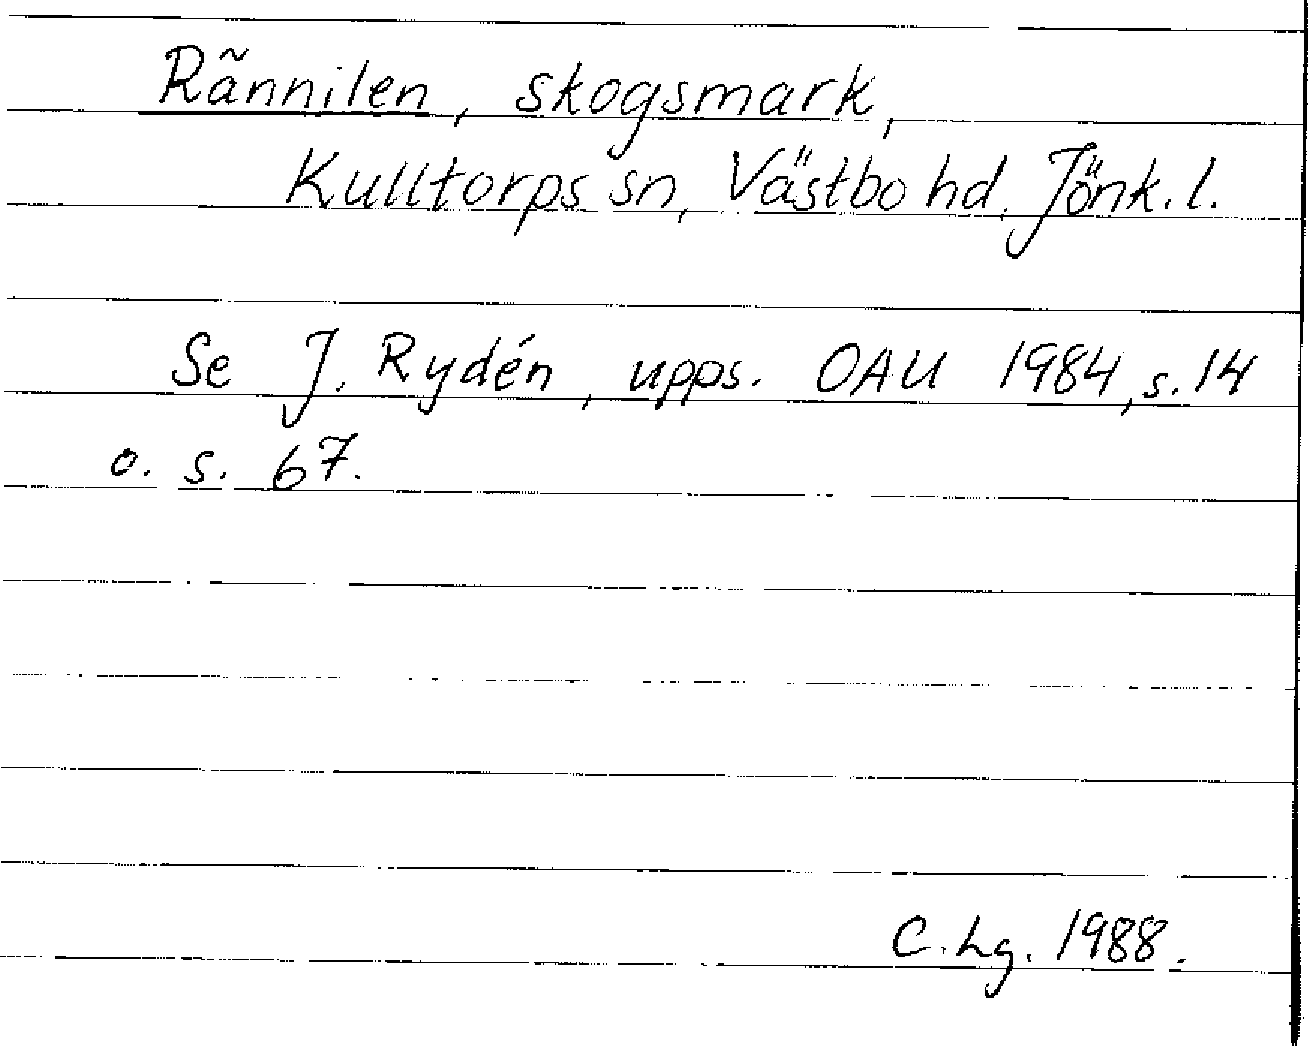 Rännilen, skogsmark,
Kulltorps sn, Västbo hd, Jönk. l.
Se J. Rydén, upps. OAU 1984, s. 14
o. s. 67.
C. Lg. 1988.